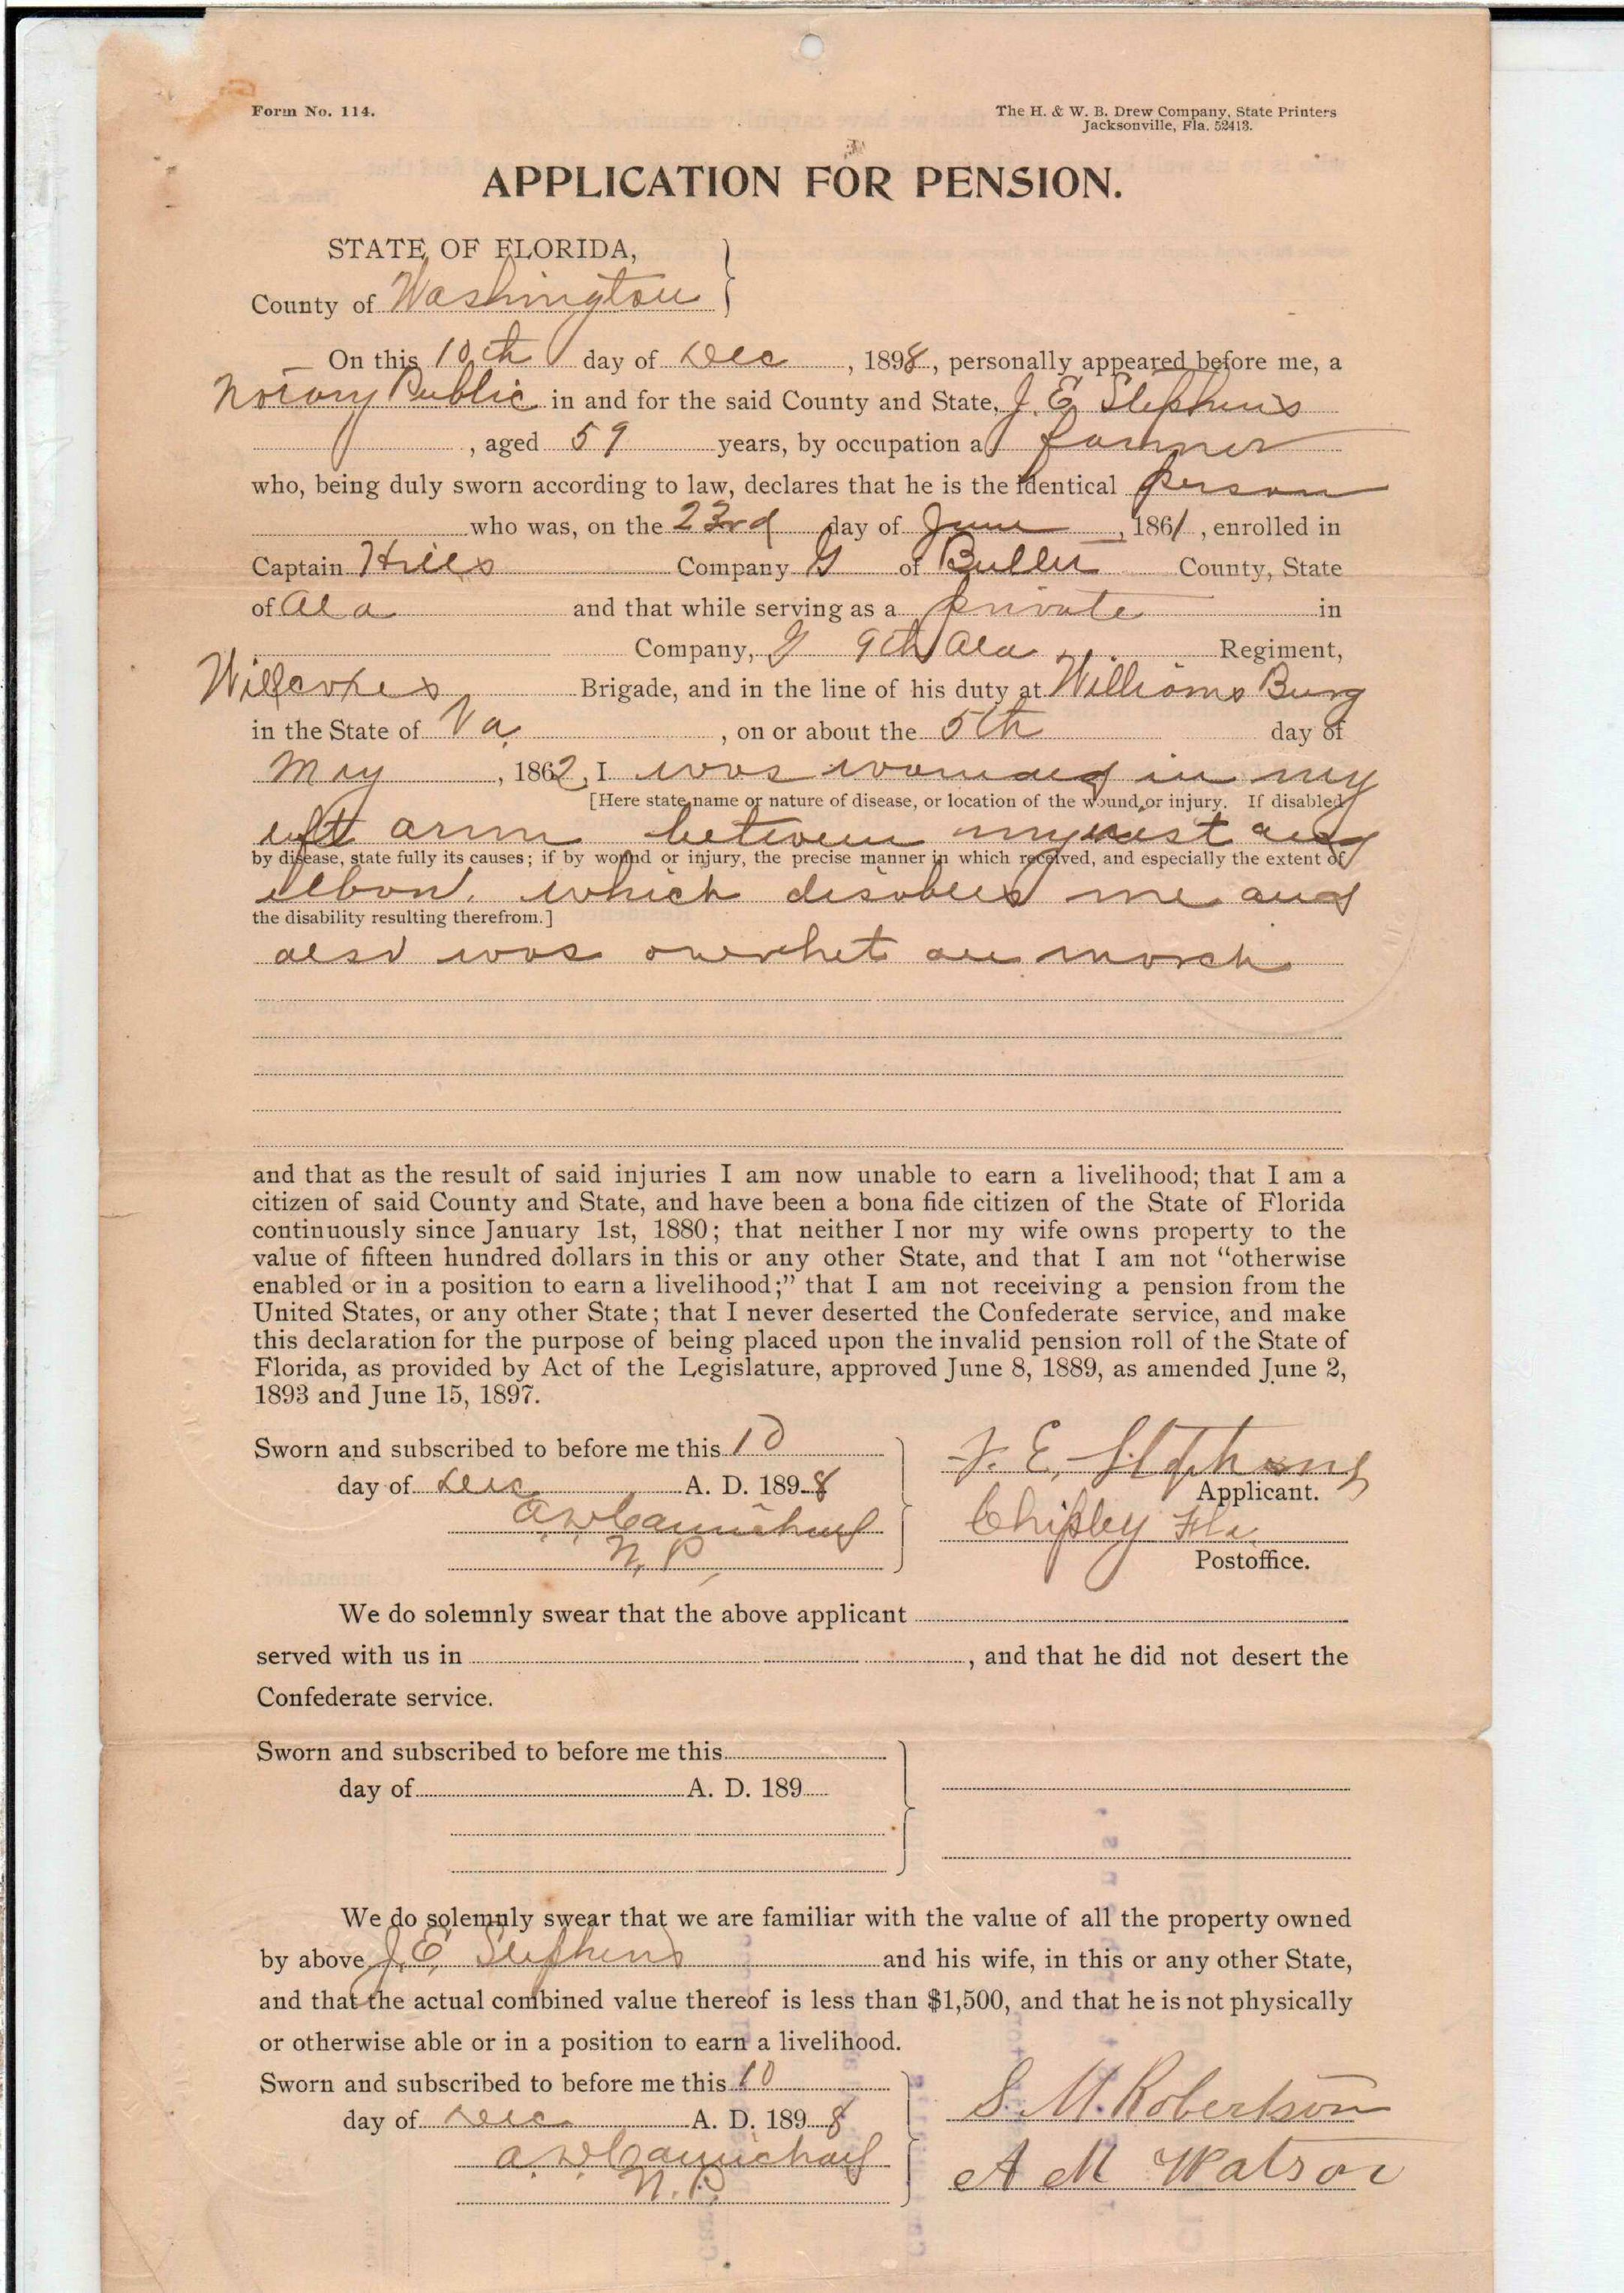 Form No. 114.
The H. & W. B. Drew Company, State Printers
Jacksonville, Fla. 52413.
APPLICATION FOR PENSION.
STATE OF FLORIDA,
County of Washington
On this 10th day of Dec, 1898, personally appeared before me, a
Notary Public in and for the said County and State, J. E. Stephens
, aged 59 years, by occupation a farmer
who, being duly sworn according to law, declares that he is the identical person
who was, on the 23rd day of June, 1861, enrolled in
Captain Hills Company G of Butler County, State
of Ala and that while serving as a private in
Company, G 9th Ala Regiment,
Willcoxes Brigade, and in the line of his duty at Williams Burg
in the State of Va, on or about the 5th day of
May, 1862, I was wounded in my
[Here state name or nature of disease, or location of the wound or injury. If disabled
left arm between my wrist and
by disease, state fully its causes; if by wound or injury, the precise manner in which received, and especially the extent of
elbow. which disables me and
the disability resulting therefrom.]
also was overhet on march
and that as the result of said injuries I am now unable to earn a livelihood; that I am a
citizen of said County and State, and have been a bona fide citizen of the State of Florida
continuously since January 1st, 1880; that neither I nor my wife owns property to the
value of fifteen hundred dollars in this or any other State, and that I am not "otherwise
enabled or in a position to earn a livelihood;" that I am not receiving a pension from the
United States, or any other State; that I never deserted the Confederate service, and make
this declaration for the purpose of being placed upon the invalid pension roll of the State of
Florida, as provided by Act of the Legislature, approved June 8, 1889, as amended June 2,
1893 and June 15, 1897.
Sworn and subscribed to before me this 10
day of Dec A. D. 1898
J. E. Stephens
Applicant.
A. W. Carmichael
N. P.
Chipley Fla
Postoffice.
We do solemnly swear that the above applicant
served with us in , and that he did not desert the
Confederate service.
Sworn and subscribed to before me this
day of A. D. 189
We do solemnly swear that we are familiar with the value of all the property owned
by above J. E. Stephens and his wife, in this or any other State,
and that the actual combined value thereof is less than $1,500, and that he is not physically
or otherwise able or in a position to earn a livelihood.
Sworn and subscribed to before me this 10
day of Dec A. D. 1898
S. M. Robertson
A. W. Carmichael
N. P.
A M Watson